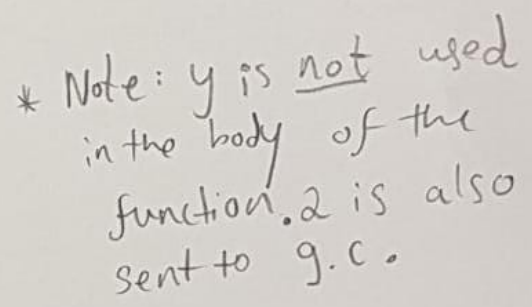 * Note: y is not used
in the body of the
function. 2 is also
sent to g.c.